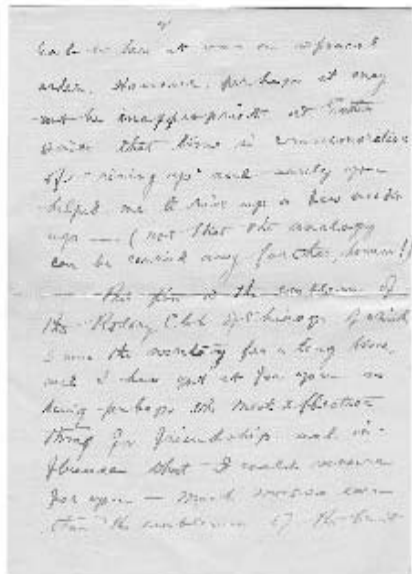 order. However, perhaps it may
not be inappropriate at Easter
since that time is commemorative
of "rising up" and surely you
helped me to rise up a few weeks
ago — (not that the analogy
can be carried any further however!)
— This pin is the emblem of
the Rotary Club of Chicago of which
I was the secretary for a long time,
and I have got it for you as
being perhaps the most effective
thing for friendship and in-
fluence that I could
for you — much more so even
than the emblem of the